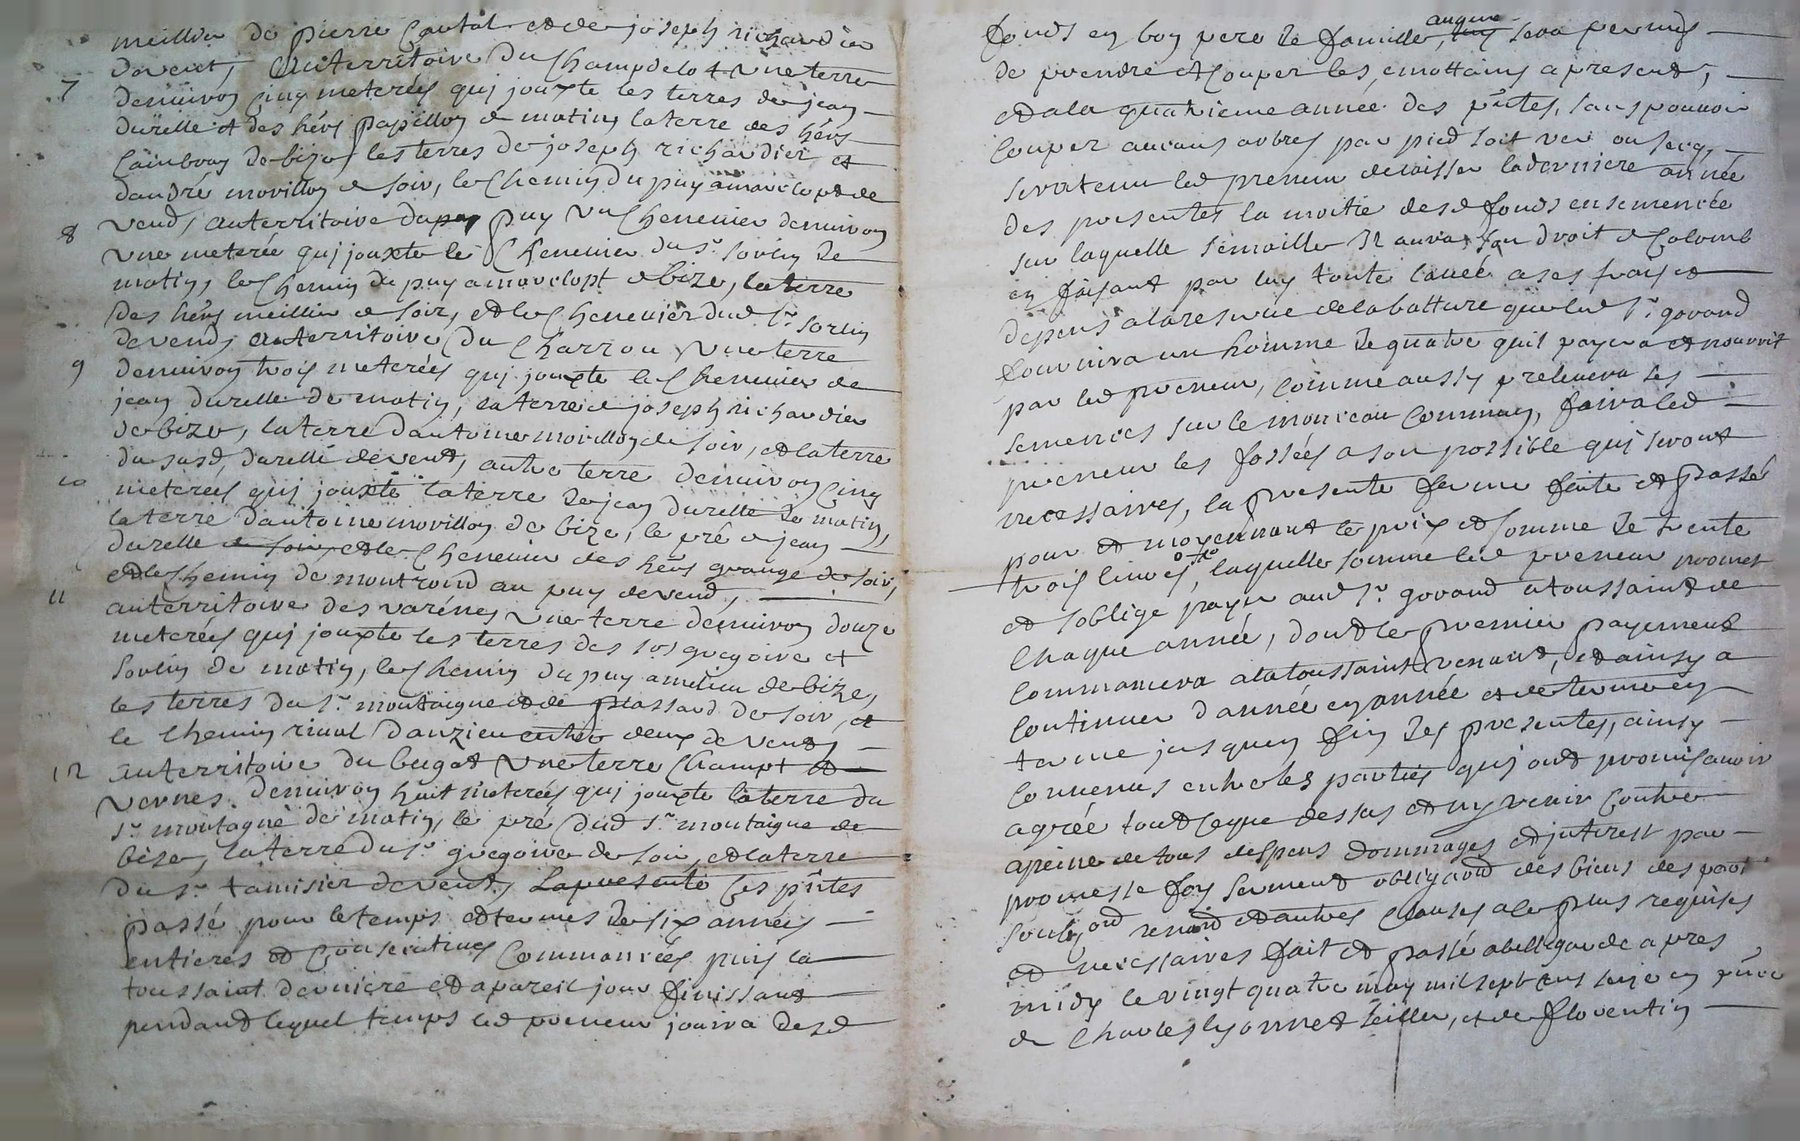 meillier de pierre Coutal et de joseph richardier
de vent, au territoire du Champdelot une terre
7 denuiron cinq meterées quj jouxte les terres de jean
durelle et des hérs papillon de matin, la terre des hérs
Cambray de bize, les terres de joseph richardier et
dandré morillon de soir, le Chemin du puy a marclopt de
vend, au territoire du puy Vn Chenevier denuiron
8 Vne meterée quj jouxte le Chenevier du sr. sorlin de
matin, le Chemin du puy a marclopt de bize, la terre
des hérs meillier de soir, et le Chenevier dud sr. sorlin
de vend, au territoire du Charzou Vne terre
9 denuiron trois meterées quj jouxte le Chenevier de
jean durelle de matin, la terre de joseph richardier
de bize, la terre dantoine morillon de soir, et la terre
du susd. durelle de vent, autre terre denuiron cinq
10 meterées quj jouxte la terre de jean durelle de matin,
la terre dantoine morillon de bize, le pré de jean
durelle de soir, et le Chenevier des hérs grange de soir,
et le Chemin de montrond au puy de vend,
11 au territoire des varénes Vne terre denuiron douze
meterées quj jouxte les terres des srs gregoire et
sorlin de matin, le Chemin du puy a melieu de bize,
les terres du sr. montaigne et de plassard de soir, et
le Chemin riaul danzieu entre deux de vend,
12 au territoire du bugat Vne terre Champt et
Vernes denuiron huit meterées quj jouxte la terre du
sr. montagne de matin, le pré dud sr. montaigne de
bize, la terre du sr. gregoire de soir, et la terre
du sr. tamisier de vend, La presente Ces pntes
passé pour le temps et termes de six années
entieres et Consecutives Commancées puis la
toussaint derniere et a pareil jour finissant
pendant lequel temps led preneur jouira desd
fonds en bon pere de famille, augure sera permis
de prendre et Couper les emottains a present,
et a la quatrieme année des pntes, sans pouvoir
Couper aucuns arbres par pied soit ver ou secq,
sera tenu led preneur de laisser la derniere année
des presentes la moitie desd fonds ensemencée
sur laquelle semaille Il aura son droit de Colomb
en faisant par luy toute la levée a ses frais et
depens a la reserve de la batture que led sr. govand
fournira un homme de quatre quil payera et nourrit
par led preneur, Comme aussy prelevera les
semences sur le monceau Commun, faira led
preneur les fossées a son possible quj seront
necessaires, la presente ferme faite et passé
pour et moyennant le prix et somme de trente
trois livres, laquelle somme led preneur promet
et soblige payer aud sr. govand a toussaint de
Chaque année, dont le premier payement
Commancera a la toussaint venant, et ainsy a
Continuer dannée en année et de terme en
terme jusquen fin des presentes, ainsy
Convenus entre les parties quj ont promis avoir
agréé tout ce que dessus et ny venir Contre
a peine de tous despens dommages et interest par
promesse foy serment obligaõn des biens des parts
soub̃ons renõn et autres Clauses a le plus requises
et necessaires fait et passé a bellegarde apres
midy le vingt quatre may mil sept cens seize en pñce
de Charles lyonnet teiller, et de florentin